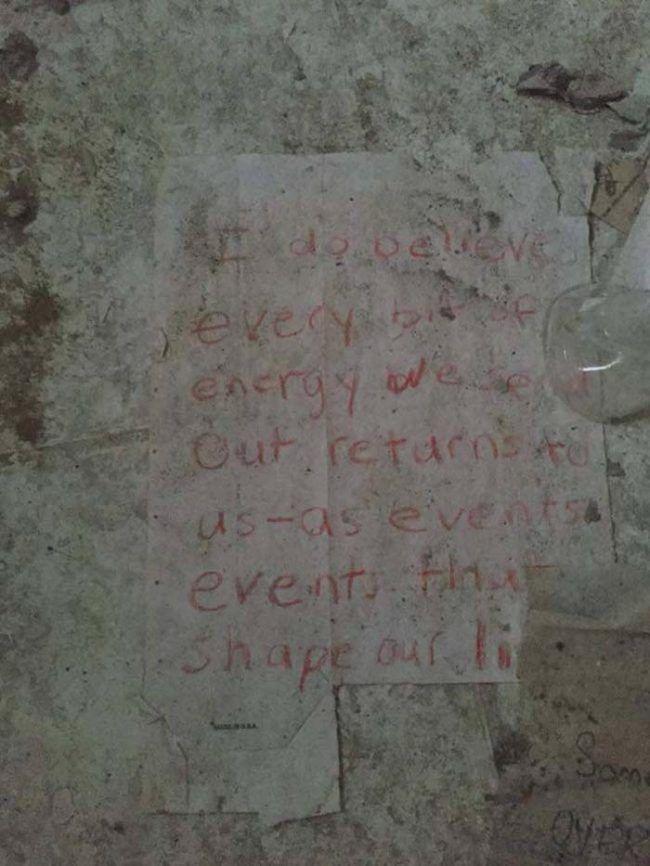 I do believe
every bit of
energy we send
out returns to
us-as events
events that
shape our li
Some
OVER